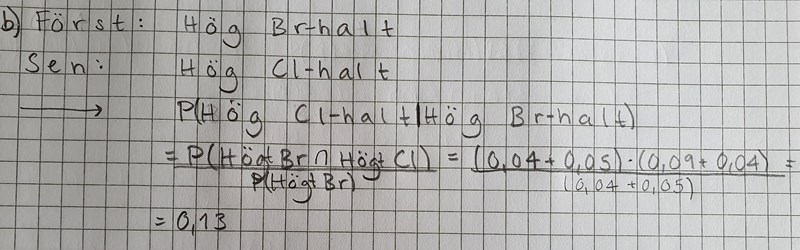 b) Först: Hög Br-halt
Sen: Hög Cl-halt
→ P(Hög Cl-halt|Hög Br-halt)
= P(Högt Br ∩ Högt Cl) / P(Högt Br) = (0,04 + 0,05) · (0,09 + 0,04) / (0,04 + 0,05) =
= 0,13